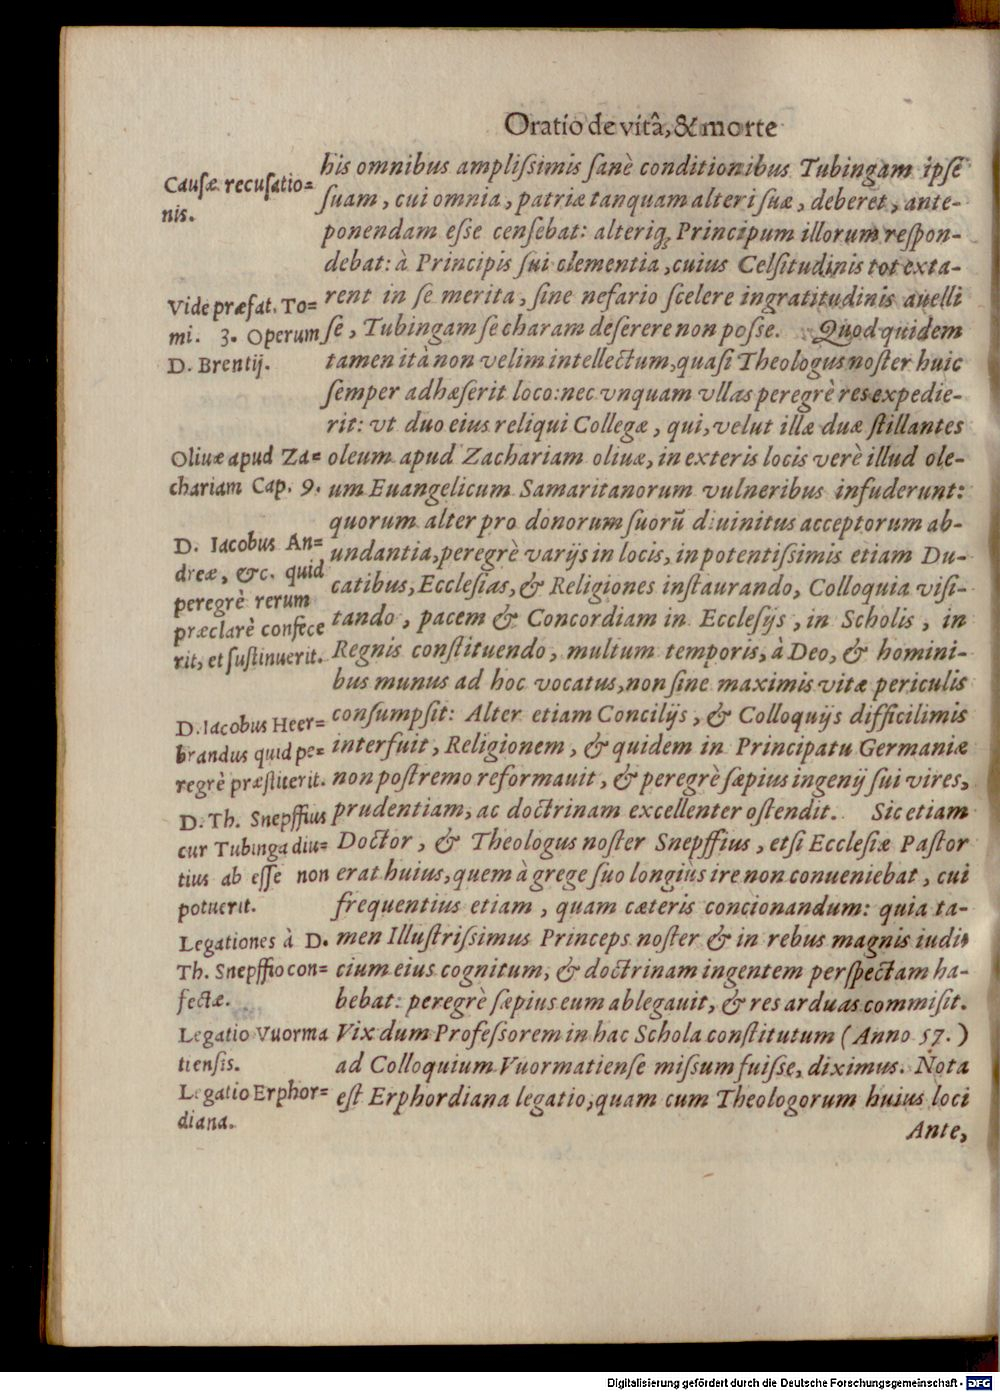 Oratio de vitâ, & morte
his omnibus ampliſsimis ſanè conditionibus Tubingam ipſe
ſuam, cui omnia, patriæ tanquam alteri ſuæ, deberet, ante-
ponendam eſse cenſebat: alteriq́; Principum illorum reſpon-
debat: à Principis ſui clementia, cuius Celſitudinis tot exta-
rent in ſe merita, ſine nefario ſcelere ingratitudinis auelli
ſe, Tubingam ſe charam deſerere non poſse. Quod quidem
tamen ità non velim intellectum, quaſi Theologus noſter huic
ſemper adhæſerit loco: nec vnquam vllas peregrè res expedie-
rit: vt duo eius reliqui Collegæ, qui, velut illæ duæ ſtillantes
oleum apud Zachariam oliuæ, in exteris locis verè illud ole-
um Euangelicum Samaritanorum vulneribus infuderunt:
quorum alter pro donorum ſuorũ diuinitus acceptorum ab-
undantia, peregrè varijs in locis, in potentiſsimis etiam Du-
catibus, Eccleſias, & Religiones inſtaurando, Colloquia viſi-
tando, pacem & Concordiam in Eccleſijs, in Scholis, in
Regnis conſtituendo, multum temporis, à Deo, & homini-
bus munus ad hoc vocatus, non ſine maximis vitæ periculis
conſumpſit: Alter etiam Concilijs, & Colloquijs difficilimis
interfuit, Religionem, & quidem in Principatu Germaniæ
non poſtremo reformauit, & peregrè ſæpius ingenij ſui vires,
prudentiam, ac doctrinam excellenter oſtendit. Sic etiam
Doctor, & Theologus noſter Snepffius, etſi Eccleſiæ Paſtor
erat huius, quem à grege ſuo longius ire non conueniebat, cui
frequentius etiam, quam cæteris concionandum: quia ta-
men Illuſtriſsimus Princeps noſter & in rebus magnis iudi-
cium eius cognitum, & doctrinam ingentem perſpectam ha-
bebat: peregrè ſæpius eum ablegauit, & res arduas commiſit.
Vix dum Profeſsorem in hac Schola conſtitutum (Anno 57.)
ad Colloquium Vuormatienſe miſsum fuiſse, diximus. Nota
eſt Erphordiana legatio, quam cum Theologorum huius loci
Ante,
Cauſæ recuſatio=
nis.
Vide præfat. To=
mi. 3. Operum
D. Brentij.
Oliuæ apud Za=
chariam Cap. 9.
D. Iacobus An=
dreæ, &c. quid
peregrè rerum
præclarè confece
rit, et ſuſtinuerit.
D. Iacobus Heer=
brandus quid pe=
regrè præſtiterit.
D. Th. Snepffius
cur Tubinga diu=
tius ab eſſe non
potuerit.
Legationes à D.
Th. Snepffio con=
fectæ.
Legatio Vuorma
tienſis.
Legatio Erphor=
diana.
Digitalisierung gefördert durch die Deutsche Forschungsgemeinschaft - DFG